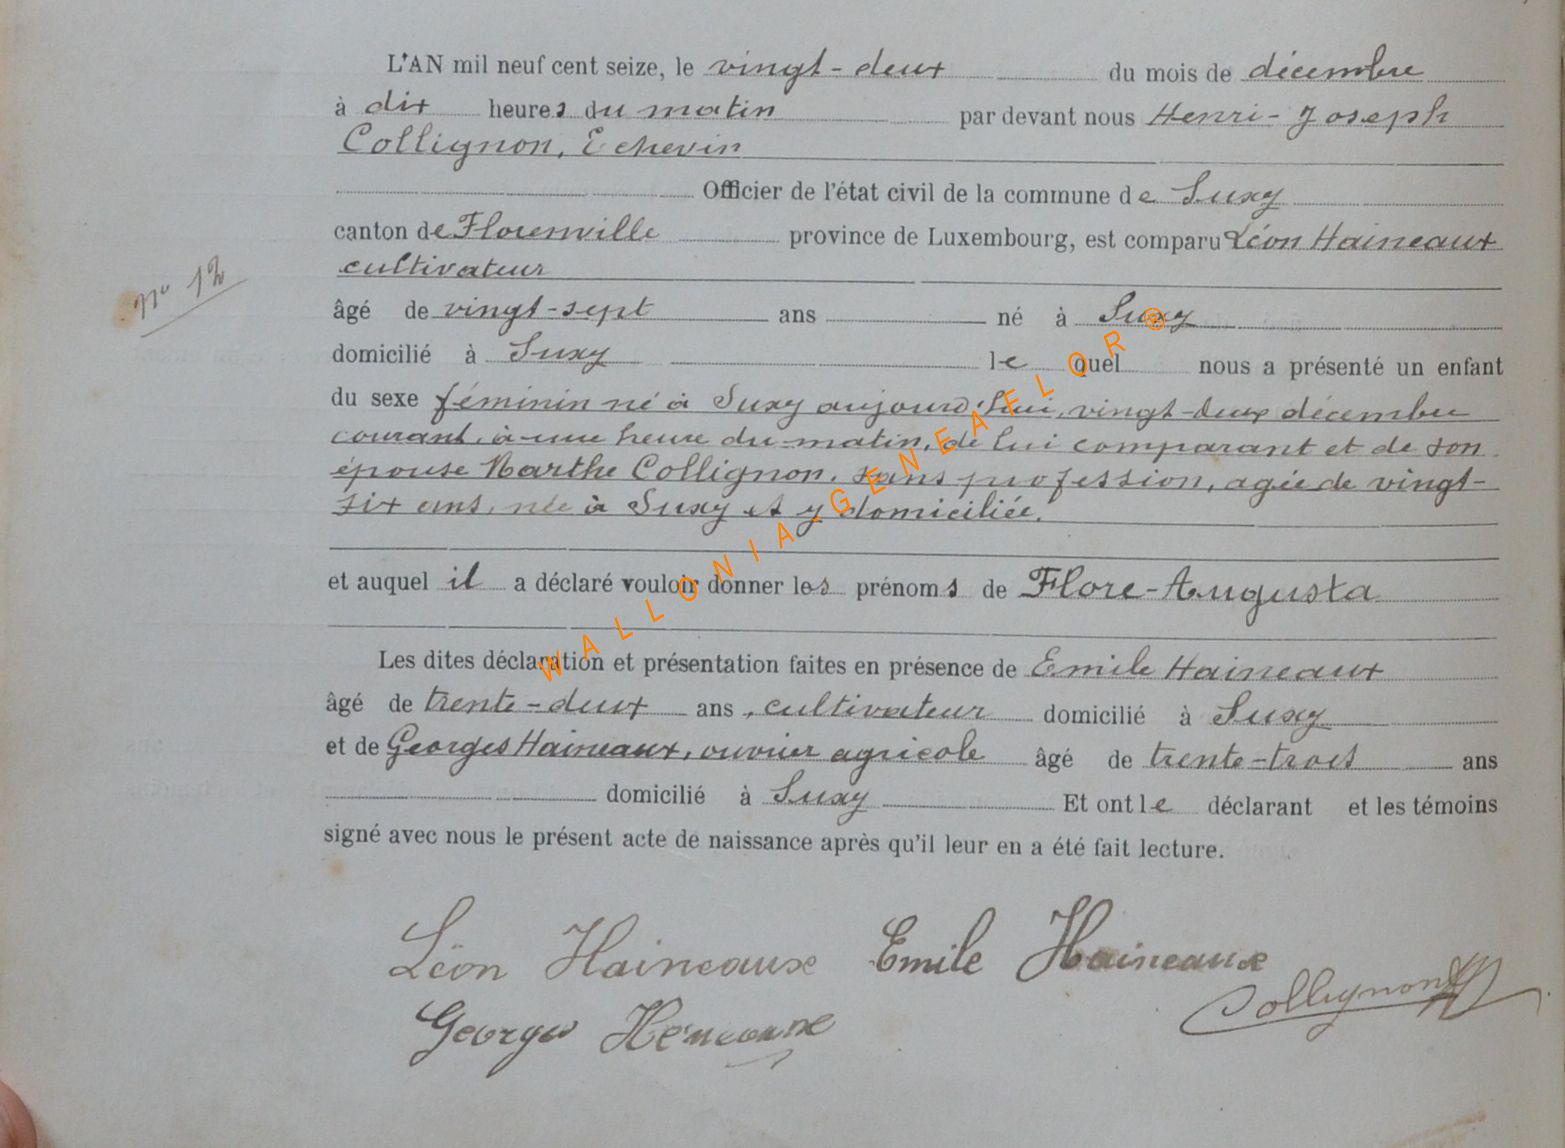 L'AN mil neuf cent seize, le vingt-deux du mois de décembre
à dix heures du matin par devant nous Henri-Joseph
Collignon, Echevin
Officier de l'état civil de la commune de Suxy
canton de Florenville province de Luxembourg, est comparu Léon Haineaux
cultivateur
N° 12
âgé de vingt-sept ans né à Suxy
domicilié à Suxy lequel nous a présenté un enfant
du sexe féminin né à Suxy aujourd'hui, vingt-deux décembre
courant, à une heure du matin, de lui comparant et de son
épouse Marthe Collignon, sans profession, agée de vingt-
six ans, née à Suxy et y domiciliée.
et auquel il a déclaré vouloir donner les prénoms de Flore-Augusta
Les dites déclaration et présentation faites en présence de Emile Haineaux
âgé de trente-deux ans, cultivateur domicilié à Suxy
et de Georges Haineaux, ouvrier agricole âgé de trente-trois ans
domicilié à Suxy Et ont le déclarant et les témoins
signé avec nous le présent acte de naissance après qu'il leur en a été fait lecture.
Léon Haineaux Emile Haineaux
Collignon
Georges Heneaux
WALLONIA GENEAFLOR®